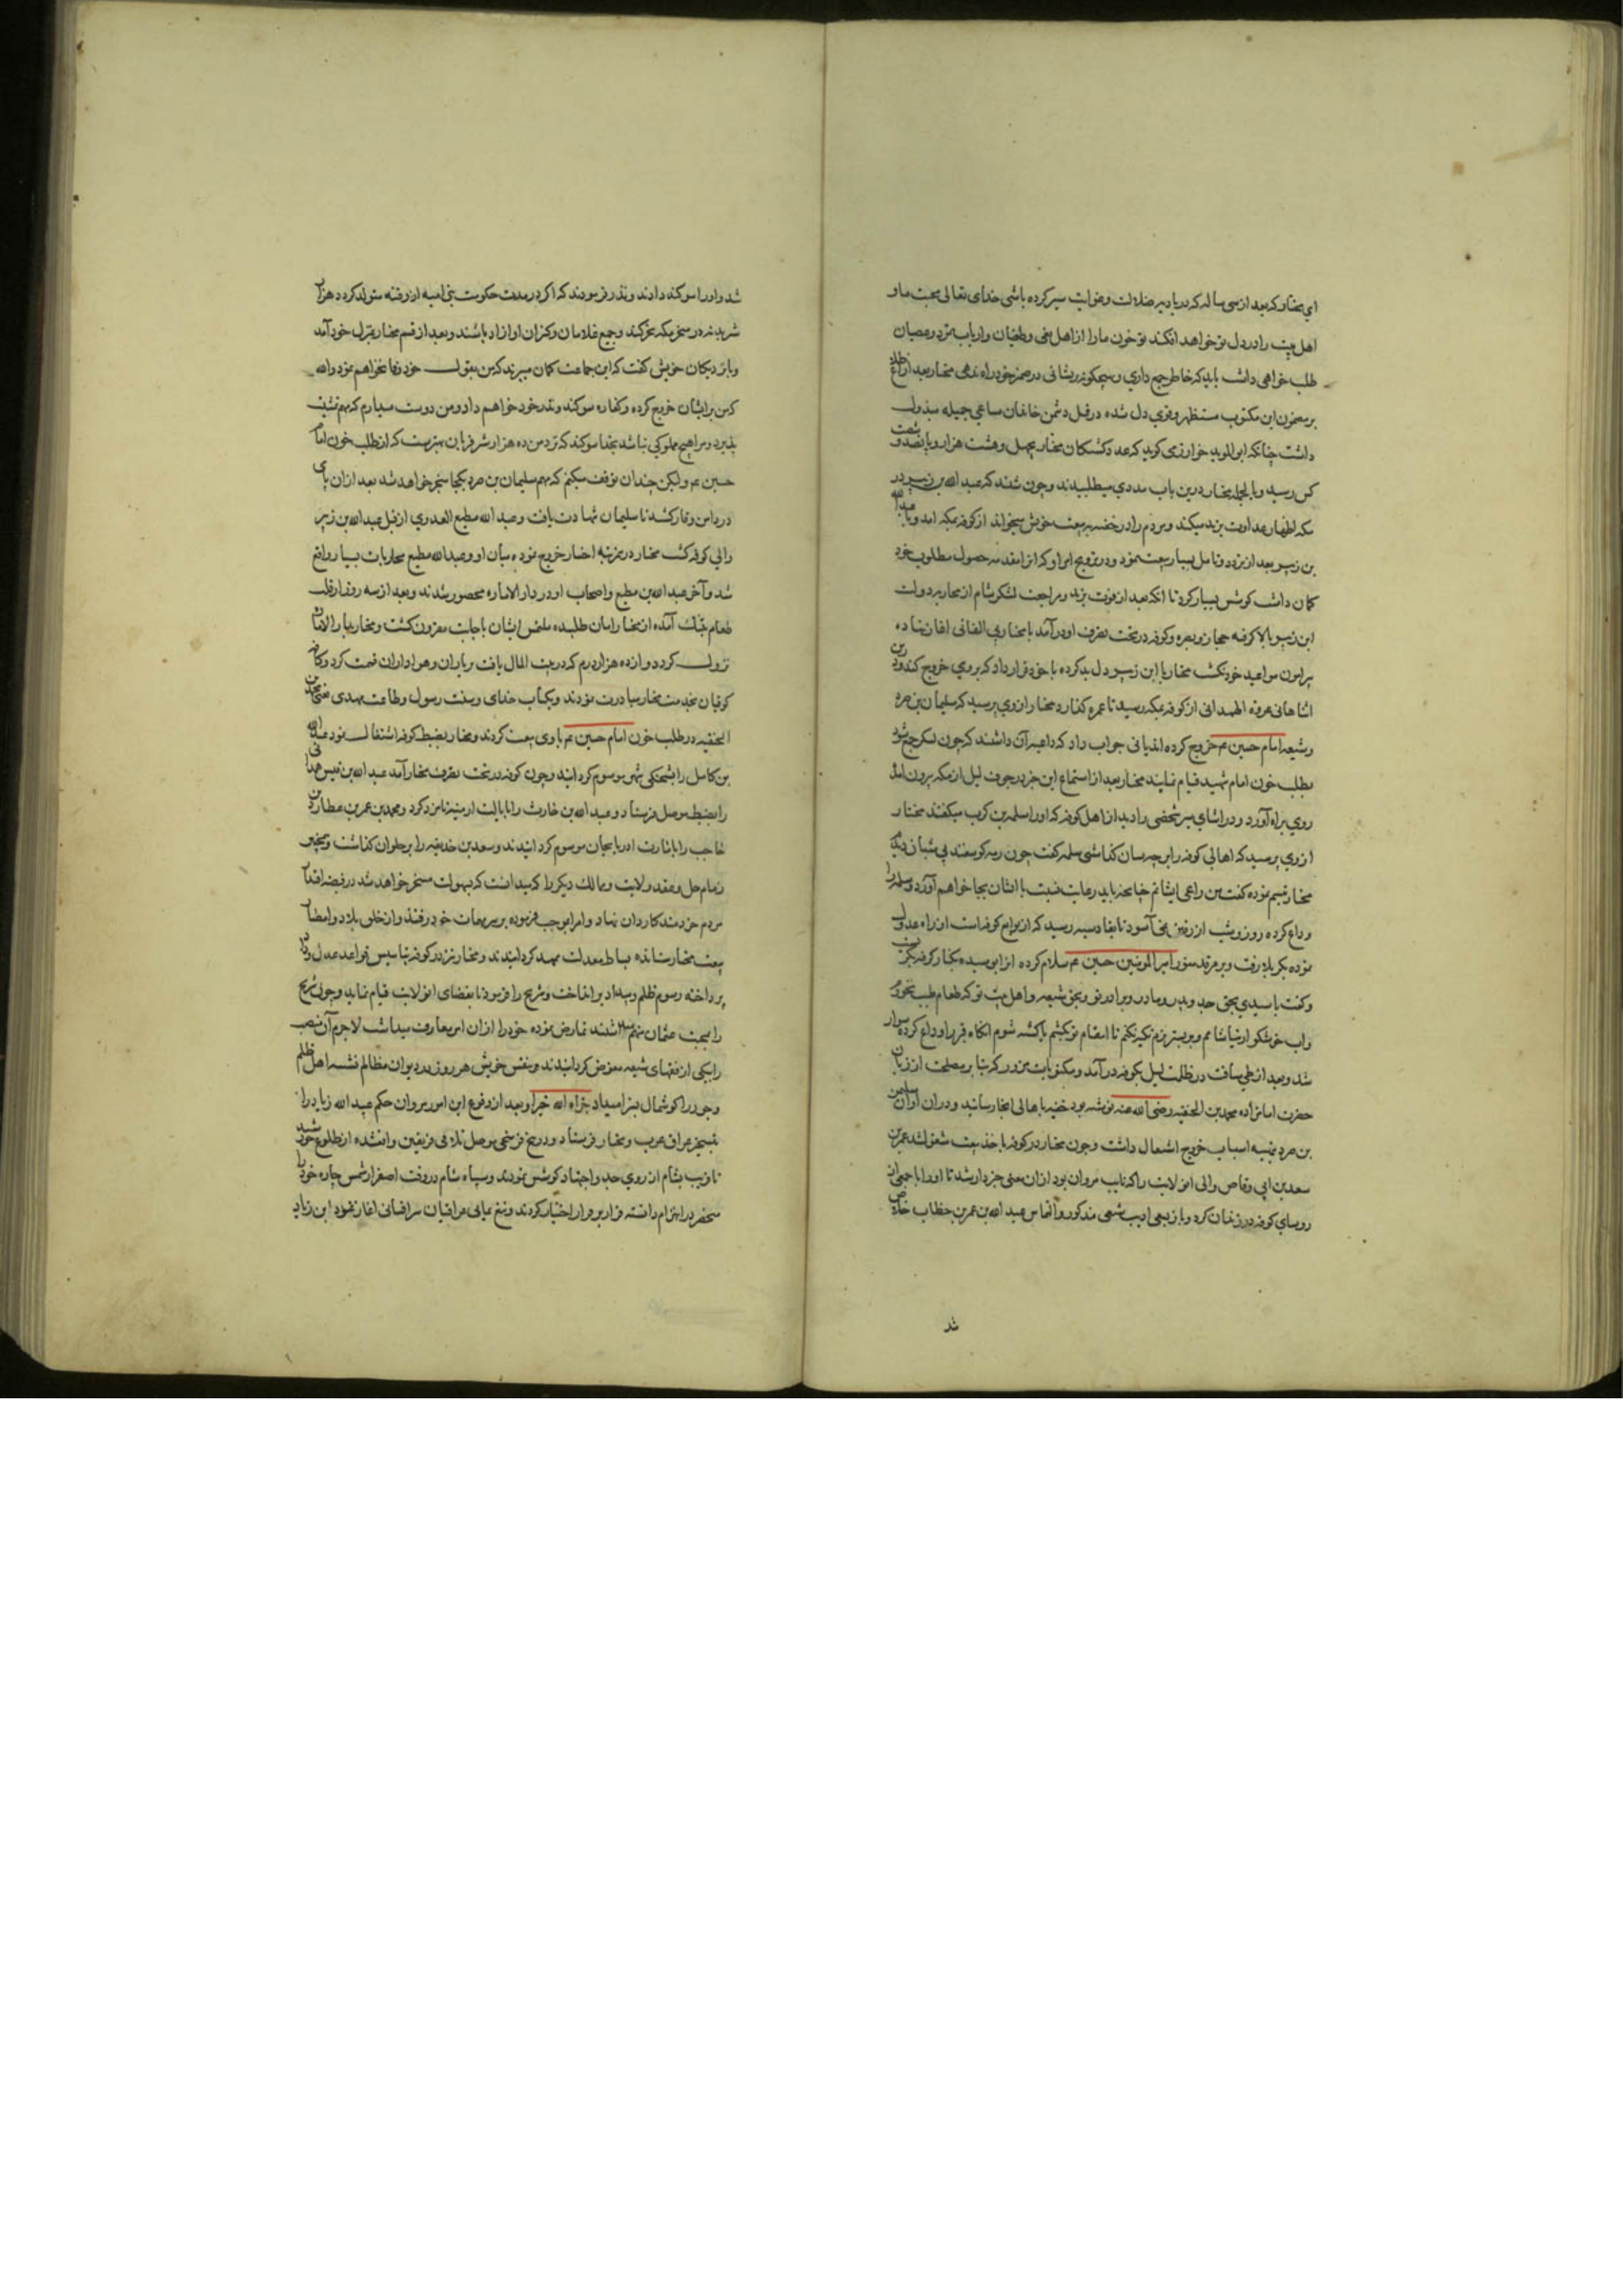 ای مختار که بعد از سی سال که در بادیه ضلالت و غوایت سیر کرده باشی خدای تعالی محبت ما و
اهل بیت را در دل تو خواهد افکند تو خون ما را از اهل بغی و طغیان و ارباب تمرد و عصیان
طلب خواهی داشت باید که خاطر جمع داری و هیچگونه پریشانی در ضمیر خود راه ندهی مختار بعد از اطلاع
بر مضمون این مکتوب مستظهر و قوی دل شده در قتل دشمن خاندان مساعی جمیله مبذول
داشت چنانکه ابو الموید خوارزمی کوید که عدد کشتکان مختار بچهل و هشت هزار و پانصد و شصت
کس رسید و بالجمله مختار درین باب مددی میطلبید و چون شنید که عبد الله بن زبیر در
مکه اظهار عداوت یزید میکند و مردم را در خفیه به بیعت خویش میخواند از کوفه بمکه امد و با عبد الله
بن زبیر بعد از تردد و تامل بسیار بیعت نمود و در ترویج امر او که انرا مقدمه حصول مطلوب خود
کمان داشت کوشش بسیار کرد تا انکه بعد از فوت یزید و مراجعت لشکر شام از محاربه دولت
ابن زبیر بالا کرفته حجاز و بصره و کوفه در تحت تصرف او درآمد با مختار بی التفاتی اغاز نهاده
پیرامون مواعید خود نکشت مختار با ابن زبیر دل بد کرده با خود قرار داد که بر وی خروج کند و درین
اثنا هانی عروه الهمدانی از کوفه بمکه رسید تا عمره کذارد مختار از وی پرسید که سلیمان بن صرد
و شیعه امام حسین ع خروج کرده اند یا نی جواب داد که داعیه آن داشتند که چون لشکر جمع شود
بطلب خون امام شهید قیام نمایند مختار بعد از استماع این خبر در جوف لیل از مکه بیرون امد
روی براه آورد و در اثنای سیر شخصی را دید از اهل کوفه که او را سلمه بن کرب میکفتند مختار
از وی پرسید که اهالی کوفه را بر چه سان کذاشتی سلمه کفت چون رمه کوسفند بی شبان دیدم
مختار تبسم نموده کفت من راعی ایشانم چنانچه باید رعایت نسبت با ایشان بجا خواهم آورد و سلمه را
وداع کرده روز و شب از رفتن نمی آسود تا بقادسیه رسید که از توابع کوفه است از راه عدول
نموده بکربلا رفت و بر مرقد منور امیر المومنین حسین ع سلام کرده انرا بوسیده بکنار کرفت بکریست
و کفت یا سیدی بحق جد و پدر و مادر و برادر تو و بحق شیعه و اهل بیت تو که طعام طیب نخورم
و اب خوشکوار نیاشامم و بر بستر نرم تکیه نکنم تا انتقام تو بکشم یا کشته شوم انکاه قبر را وداع کرده سوار
شد و بعد از طی مسافت در ظلمت لیل بکوفه درآمد و مکتوبات مزور که بنا بر مصلحت از زبان
حضرت امامزاده محمد بن الحنفیه رضی الله عنه نوشته بود خفیه باهالی انجا رسانید و در ان اوان سلیمان
بن صرد بتهیه اسباب خروج اشتغال داشت و چون مختار در کوفه باخذ بیعت مشغول شد عمر بن
سعد بن ابی وقاص والی ان ولایت را که نایب مروان بود از ان معنی خبردار شد تا او را با جمعی از
روسای کوفه در زندان کرد و باز بسعی ادیب شعبی مذکور و انفاس عبد الله بن عمر بن خطاب خلاص
شد
شد و او را سوکند دادند و نذر فرمودند که اکر در مدت حکومت بنی امیه از و فتنه متولد کردد هزار
شتر بدنه در سخر مکه نحر کند و جمیع غلامان و کنیزان او ازاد باشند و بعد از قسم مختار بمنزل خود آمد
و با نزدیکان خویش کفت که این جماعت کمان میبرند که من بقول خود وفا نخواهم نمود والله
که من بر ایشان خروج کرده و کفاره سوکند و نذر خود خواهم داد و من دوست میدارم که مهم تمشیت
پذیرد و مرا هیچ مملوکی نباشد بخدا سوکند که نزد من ده هزار شتر قربان بهتر نیست که از طلب خون امام
حسین ع و لیکن چندان توقف میکنم که مهم سلیمان بن صرد بکجا منجر خواهد شد بعد ازان پای
در دامن وقار کشید تا سلیمان شهادت یافت و عبد الله مطیع العدوی از قبل عبد الله بن زبیر
والی کوفه کشت مختار در مرتبه اخبار خروج نموده میان او و عبد الله مطیع محاربات بسیار واقع
شد و آخر عبد الله بن مطیع و اصحاب او در دار الاماره محصور شدند و بعد از سه روز از قلت
طعام بتنک آمده از مختار امان طلبیده ملتمس ایشان باجابت مقرون کشت و مختار بدار الاماره
نزول کرد دوازده هزار درم که در بیت المال یافت بر یاران و هواداران قسمت کرد و کافه
کوفیان بخدمت مختار مبادرت نمودند و بکتاب خدای و سنت رسول و طاعت مهدی یعنی محمد بن
الحنفیه در طلب خون امام حسین ع با وی بیعت کردند و مختار بضبط کوفه اشتغال نمود عبد الله
بن کامل را بشحنکی شهر موسوم کردانید و چون کوفه در تحت تصرف مختار آمد عبد الله بن قیس همدانی
را بضبط موصل فرستاد و عبد الله بن حارث را بایالت ارمنیه نامزد کرد و محمد بن عمر بن عطارد بن
حاجب را باشارت ادربایجان موسوم کردانیدند و سعد بن حذیفه را بر حلوان کذاشت و همچنین
زمام حل و عقد ولایت و ممالک دیکر را که میدانست که بسهولت مسخر خواهد شد در قبضه اقتدار
مردم خردمند کاردان نهاد و امرا بموجب فرموده بر سر مهمات خود رفتند و از خلق بلاد و امصار
بیعت مختار ستانده بساط معدلت ممهد کردانیدند و مختار نیز در کوفه بتاسیس قواعد عدل و داد
پرداخته رسوم ظلم و بیداد برانداخت و شریح را فرمود تا بقضای ان ولایت قیام نماید و چون شریح
را بمحبت عثمان متهم داشتند تمارض نموده خود را از ان امر معاف میداشت لاجرم آن منصب
را بیکی از فقهای شیعه مفوض کردانیدند و بنفس خویش هر روز در دیوان مظالم نشسته اهل ظلم
و جور را کوشمال بسزا میداد جزاه الله خیرا و بعد از وقوع این امور مروان حکم عبد الله زیاد را
بتسخیر عراق عرب و مختار فرستاد و در پنج فرسخی موصل تلاقی فریقین واقع شده از طلوع خورشید
تا قریب بشام از روی جد و اجتهاد کوشش نمودند و سپاه شام در وقت اصفرار شمس چاره خود را
منحصر در انهزام دانسته فرار بر قرار اختیار کردند و تیغ یمانی عراقیان سرافشانی اغاز نمود ابن زیاد